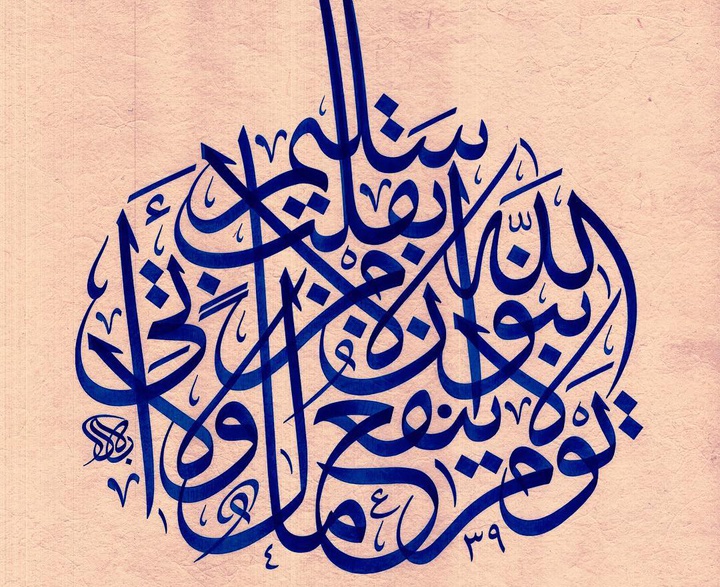 يوم لا ينفع مال ولا
بنون إلا من أتى الله
بقلب سليم
١٤٣٩